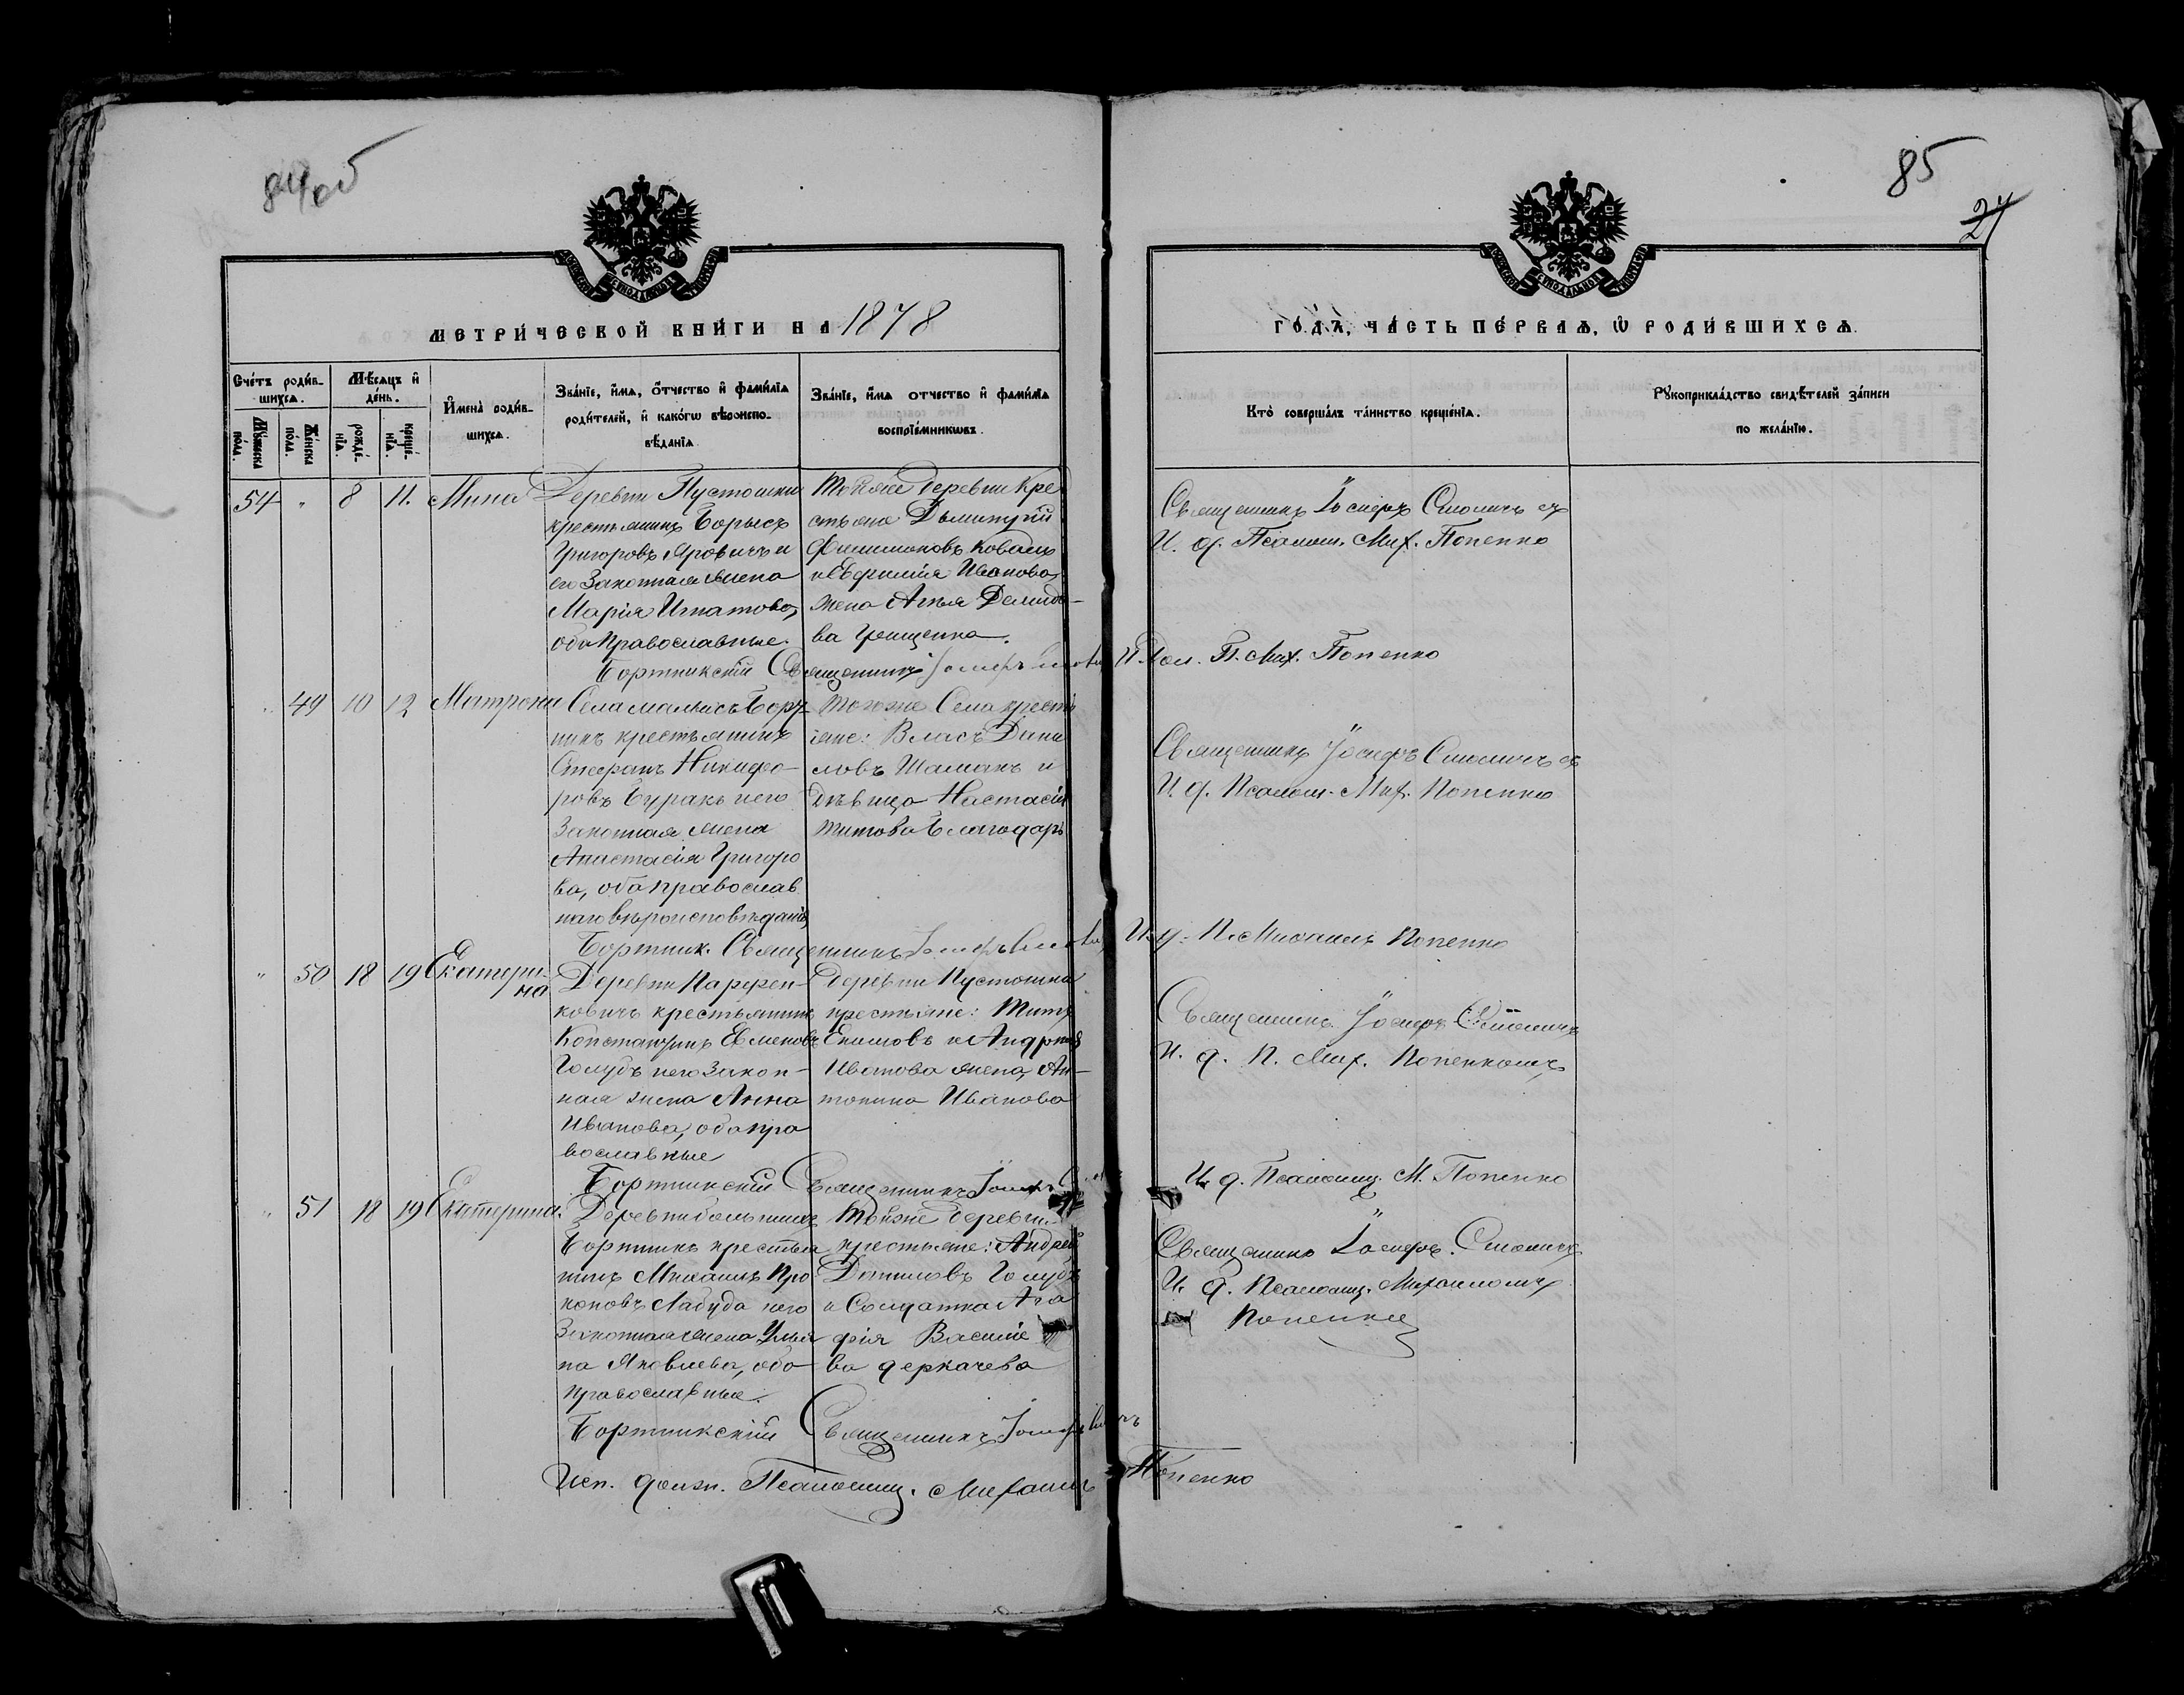 84об
85
24
МЕТРИ́ЧЕСКОЙ КНИ́ГИ НА 1878
ГО́ДЪ, ЧА́СТЬ ПЕ́РВАѦ, Ѽ РОДИ́ВШИХСѦ.
Сче́тъ роди́в-
шихсѧ.
Мѣ́сѧцъ и҆
де́нь.
И҆мена̀ роди́в-
шихсѧ.
Зва́нїе, и҆́мѧ, ѻ҆́тчество и҆ фами́лїѧ
роди́телей, и҆ како́гѡ вѣроиспо-
вѣ́данїѧ.
Зва́нїе, и҆́мѧ ѻтчество и҆ фами́лїѧ
воспрїе́мникѡвъ.
Мꙋ́жеска
по́ла.
Же́нска
по́ла.
рожде́-
нїѧ.
креще́-
нїѧ.
Кто̀ соверша́лъ та́инство креще́нїѧ.
Рꙋкоприкла́дство свидѣ́телей за́писи
по жела́нїю.
54 " 8 11. Мина
Деревни Пустошки
крестьянинъ Борысъ
Григоровъ и
его Законная жена
Мария Игнатова,
оба Православные.
Тойже деревни Кре
стьяне Дымитрій
Филимоновъ Коваль
Иванова
жена
ва
Священникъ Іосифъ
И. д. Псалом. Мих. Попенко
Бортникскій Священникъ Іосифъ
П. Мих. Попенко
" 49 10 12 Матрона
Села малыхъ Борт
никъ крестьянинъ
Стефанъ Никифо-
ровъ Буракъ и его
Законная жена
Анастасія Григоро
ва, оба православ
наго вѣроисповѣданія
Тогоже Села кресть
яне: Власъ Дани
ловъ Шаманъ и
дѣвица Настасія
Титова Благодарь
Священникъ Іосифъ
И. д. Псалом. Мих. Попенко
Бортник. Священникъ Іосифъ
И. д. П. Михаилъ Попенко
" 50 18 19 Екатери-
на
Деревни Парфен-
ковичъ крестьянинъ
Константинъ
Голубъ и его Закон-
ная жена Анна
Иванова, оба пра
вославные
Деревни Пустошки
крестьяне: Титъ
Екимовъ и Андрея
Иванова жена, Ан-
тонина Иванова
Священникъ Іосифъ
И. д. П. Мих. Попенкомъ
Бортникскій Священникъ Іосифъ
И. д. Псаломщ. М. Попенко
" 51 18 19 Екатерина.
Деревни большихъ
Бортникъ крестья
нинъ Михаилъ Про
коповъ Лабуда и его
Законная жена Улья
на Яковлева, оба
православные.
Тойже деревни
крестьяне: Андрей
Даниловъ Голубъ
и Солдатка Ага
фія Василіе
ва деркачева
Священникъ Іосифъ
И. д. Псаломщ. Михаиломъ
Попенко
Бортникскій Священникъ Іосифъ
Исп. должн. Псаломщ. Михаилъ Попенко